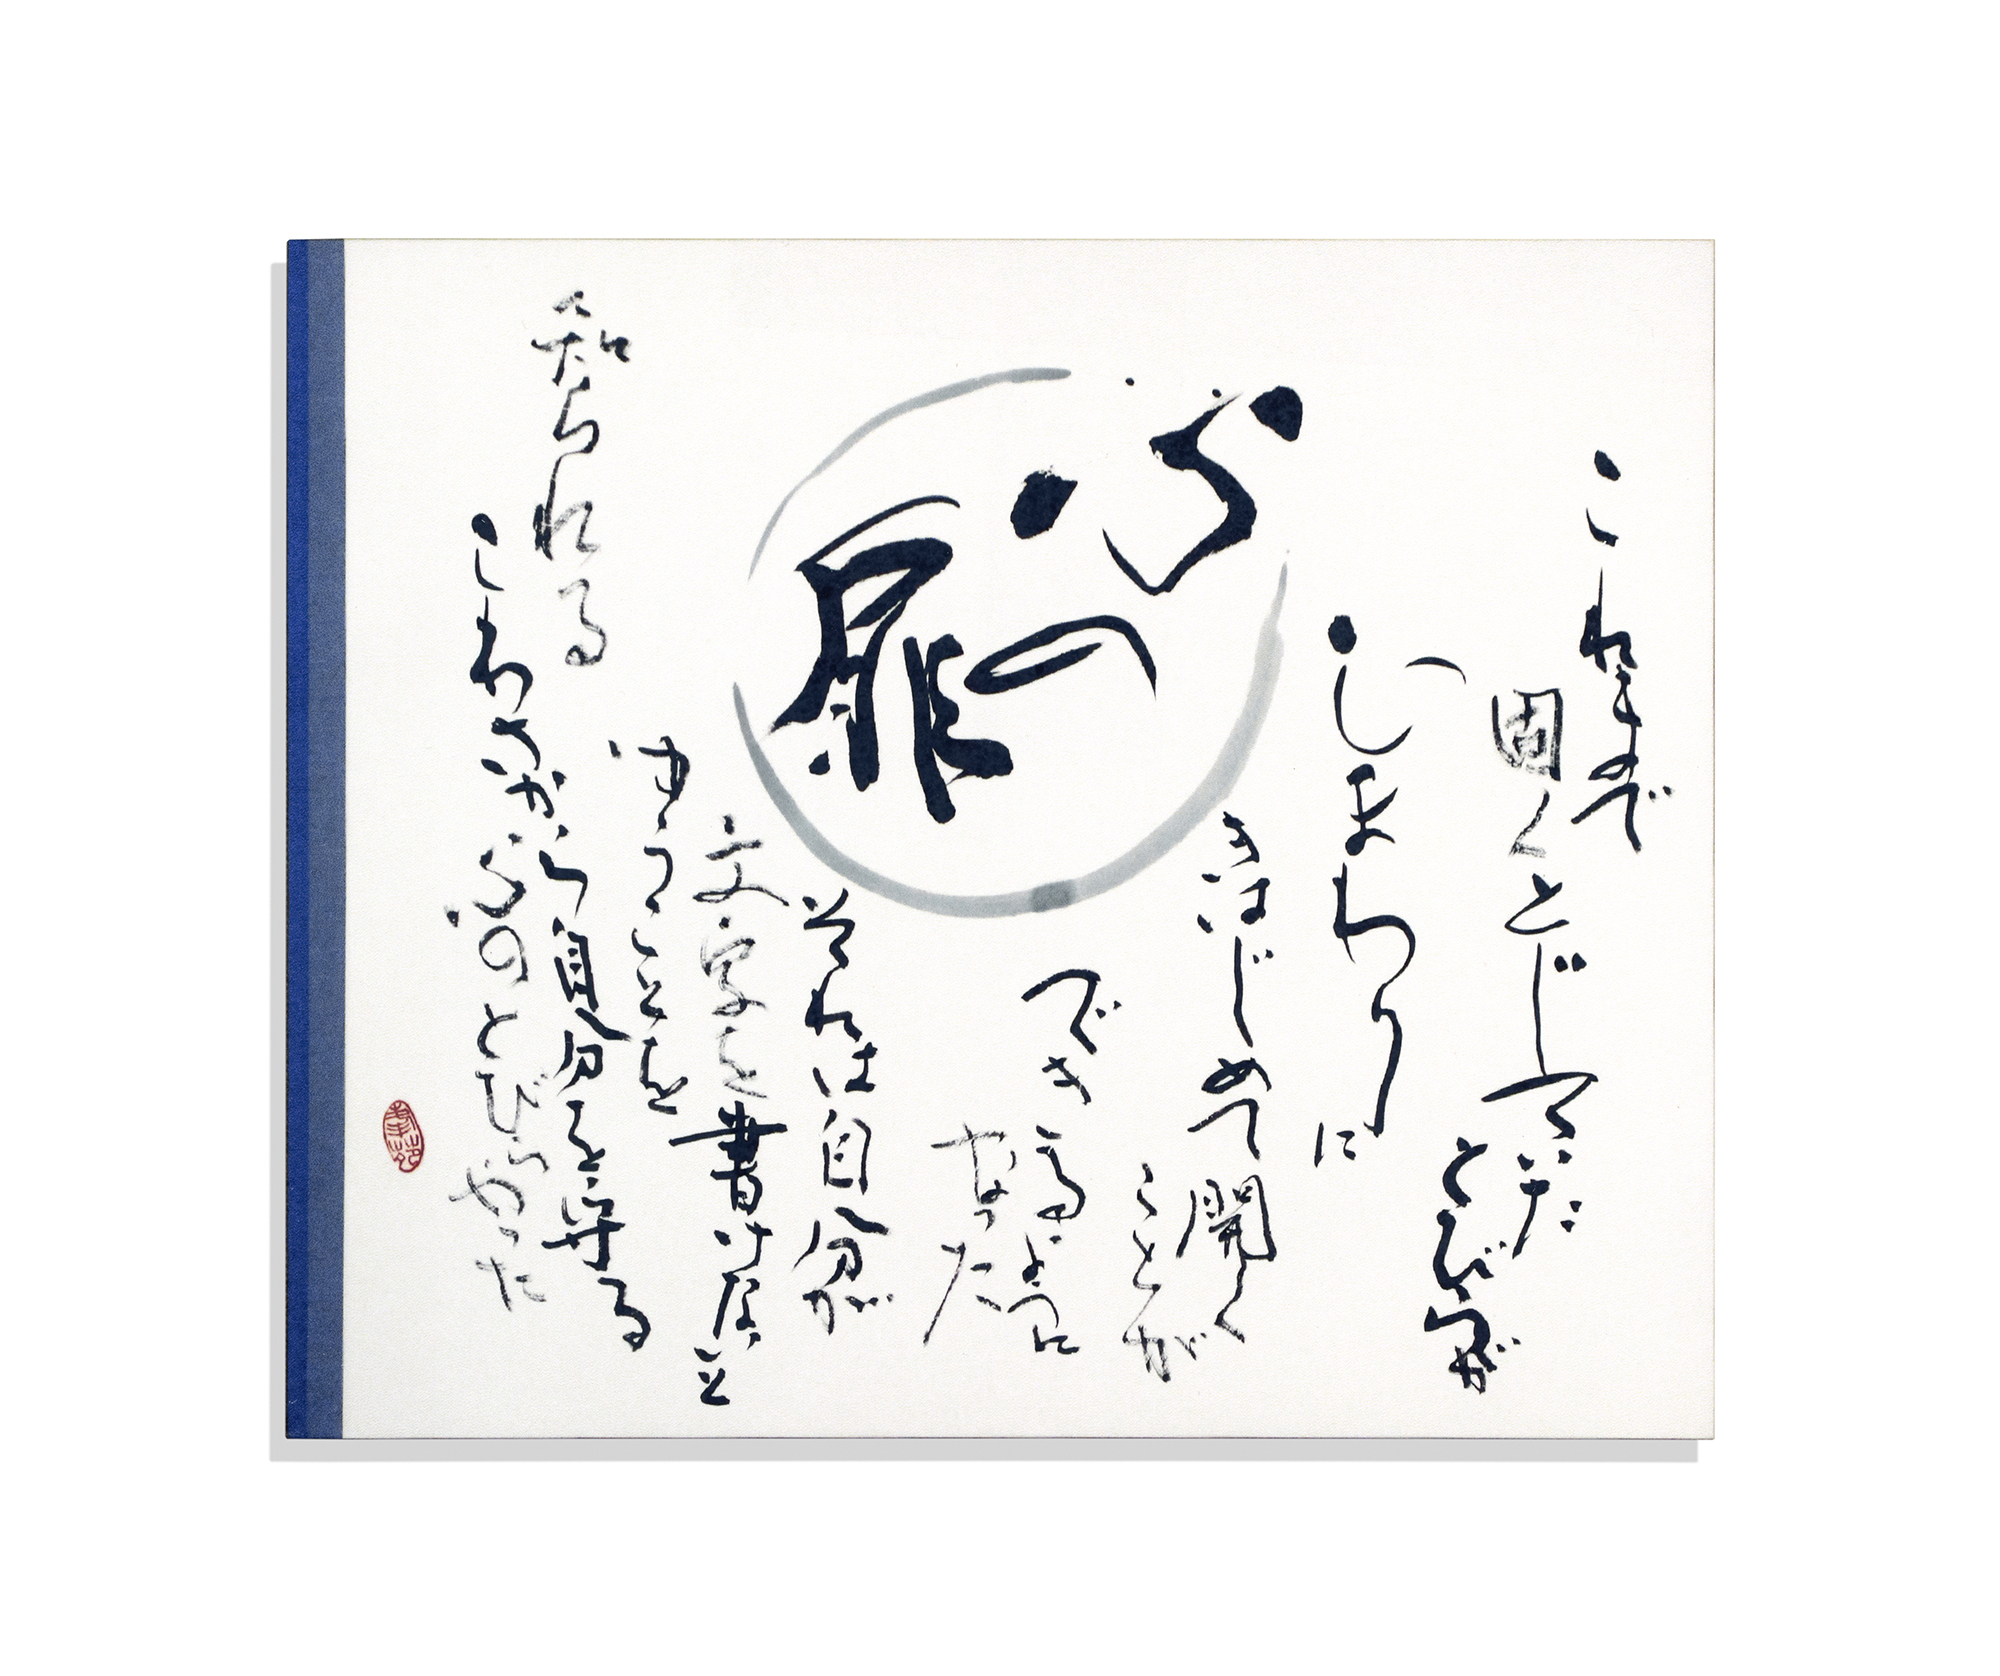 心の
扉
これまで
固くとじていた
とびらが
ひまわりに
きはじめて開く
ことが
できるように
なった
それは自分が
文字を書けないと
ゆうことを
知られる
こわさから自分を守る
心のとびらやった